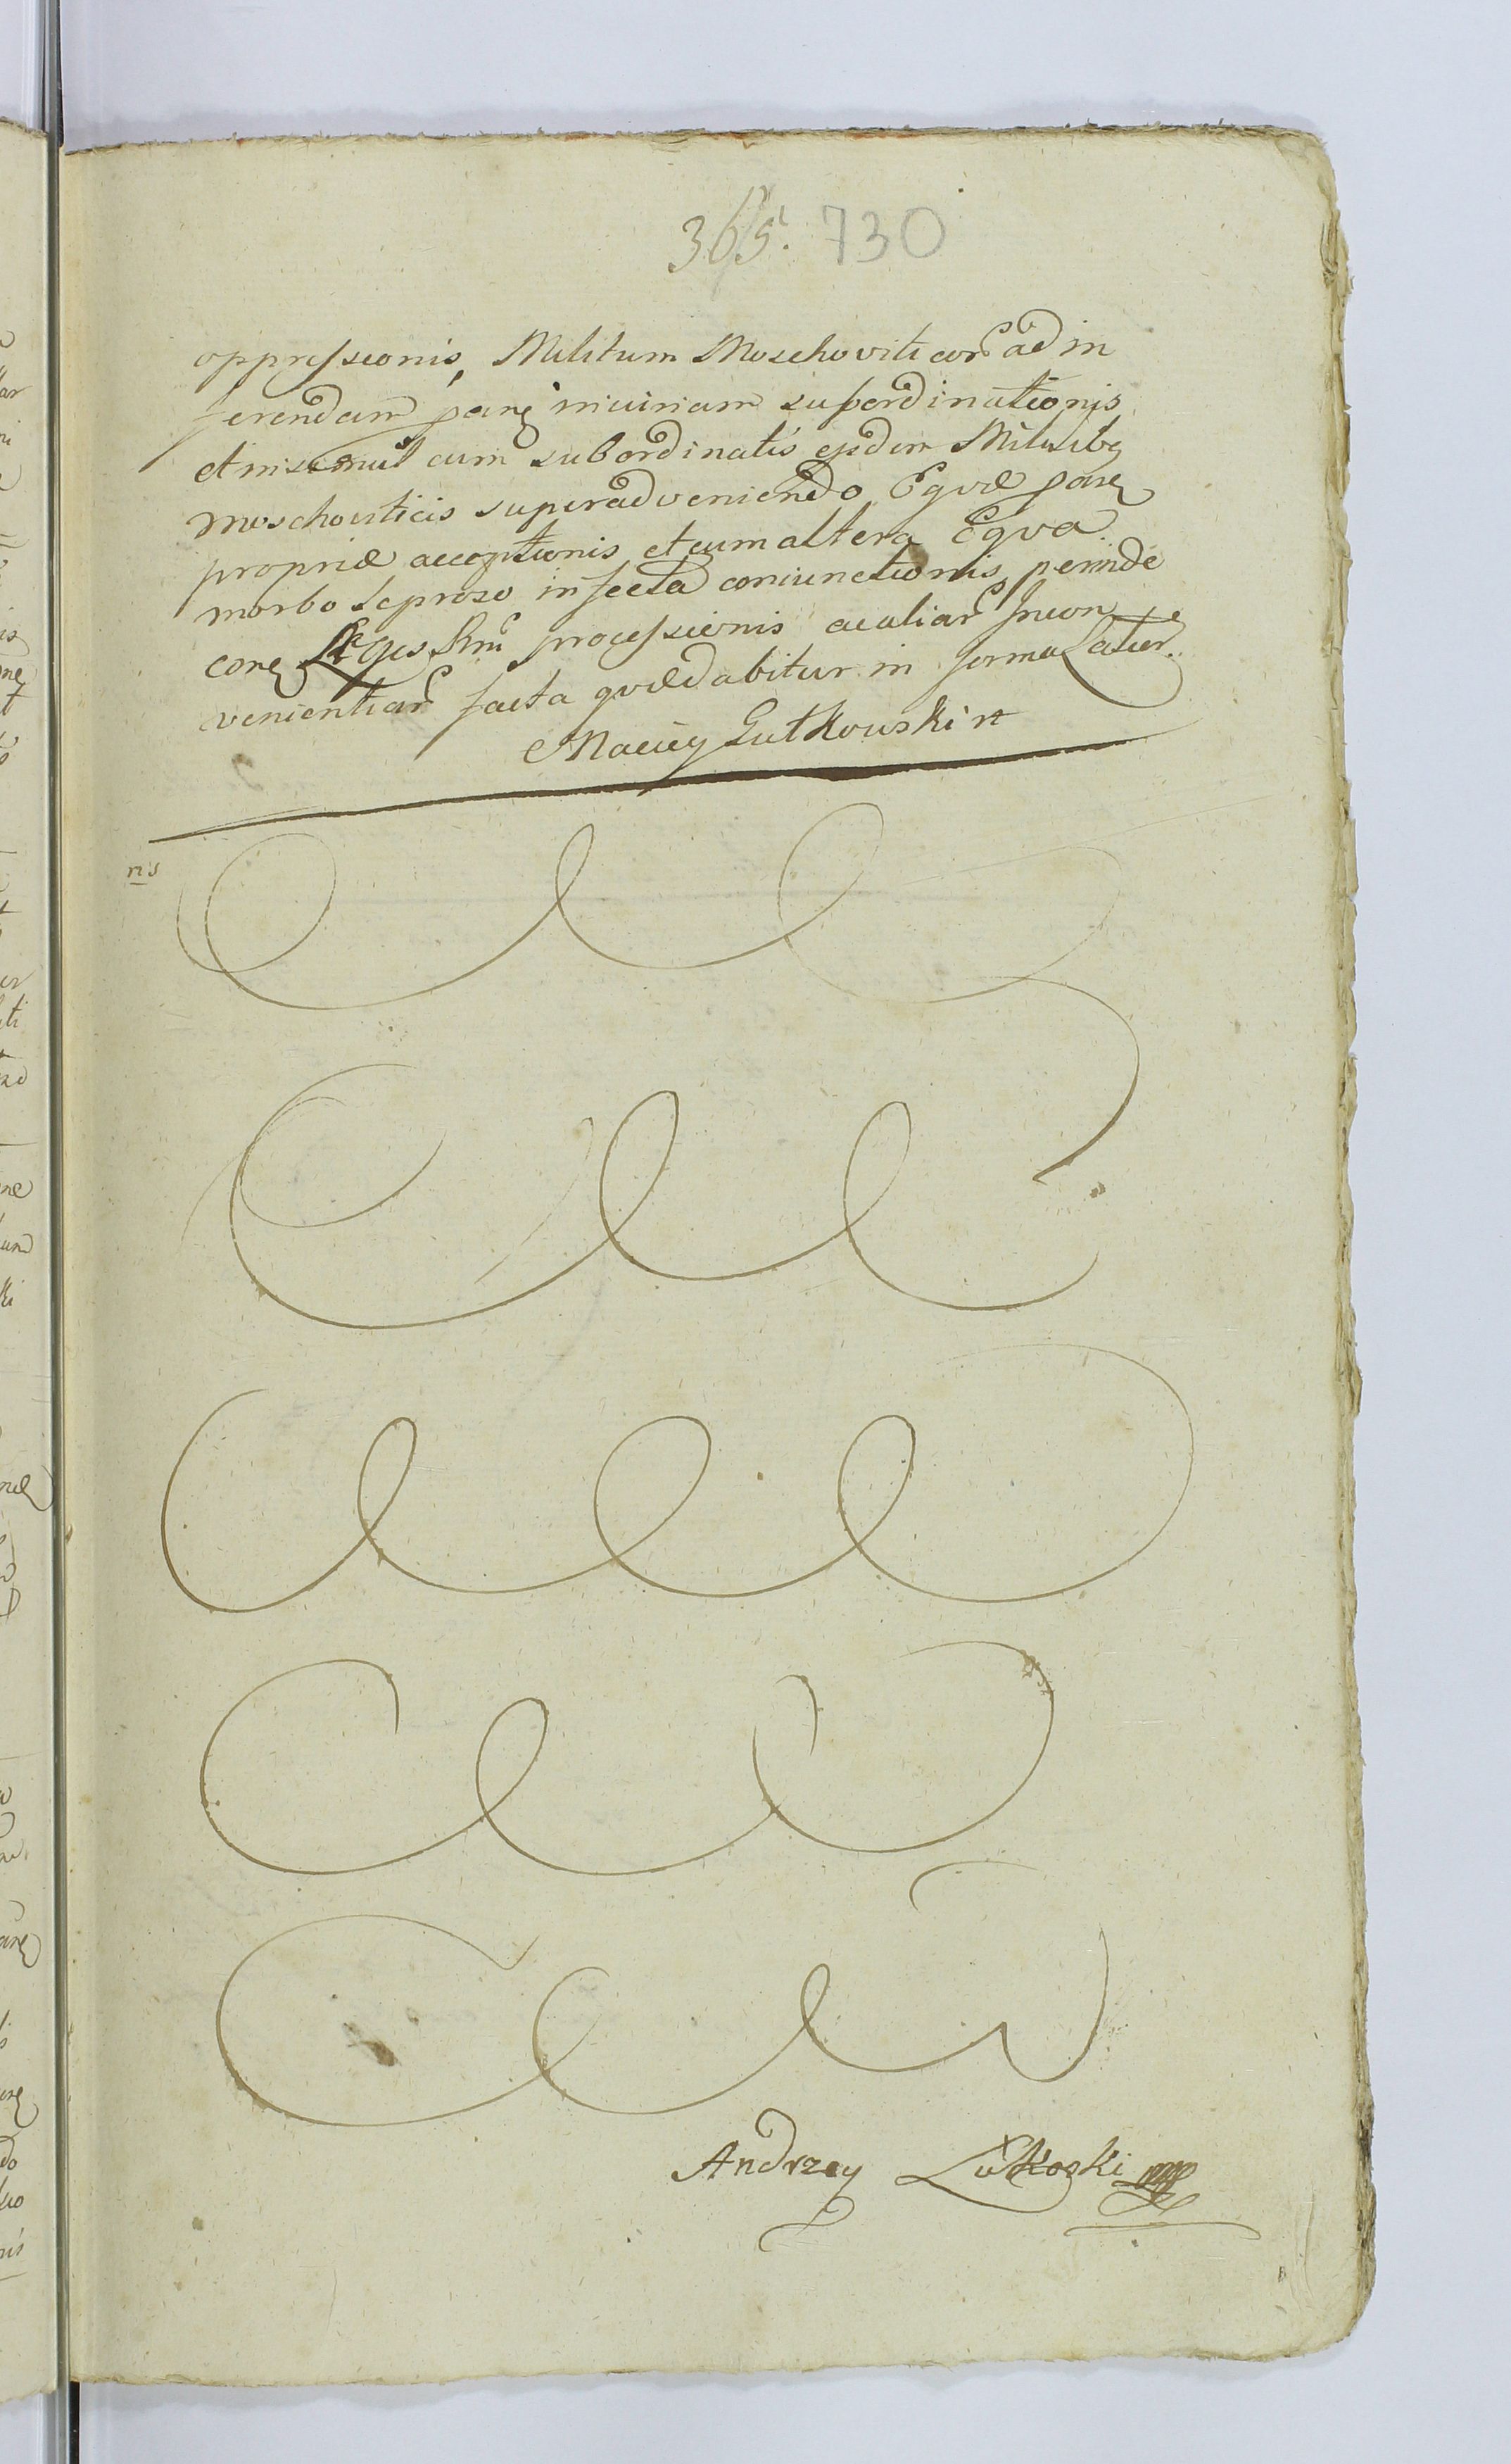 365. 730
oppressionis, Militum Moschoviticor ad in
ferendam parē iniuriam subordinationis
et insimul cum subordinatis ejsdem Militibq
moschoviticis superadveniendo Eqvæ parē
propriæ acceptionis et cum altera Eqva
morbo Leproso infecta coniunctionis perinde
processionis aealiar Incon
venientiar facta qvæ dabitur in forma Latior.
Maciey Gutkowski
ns
Andrzey Lutkoski